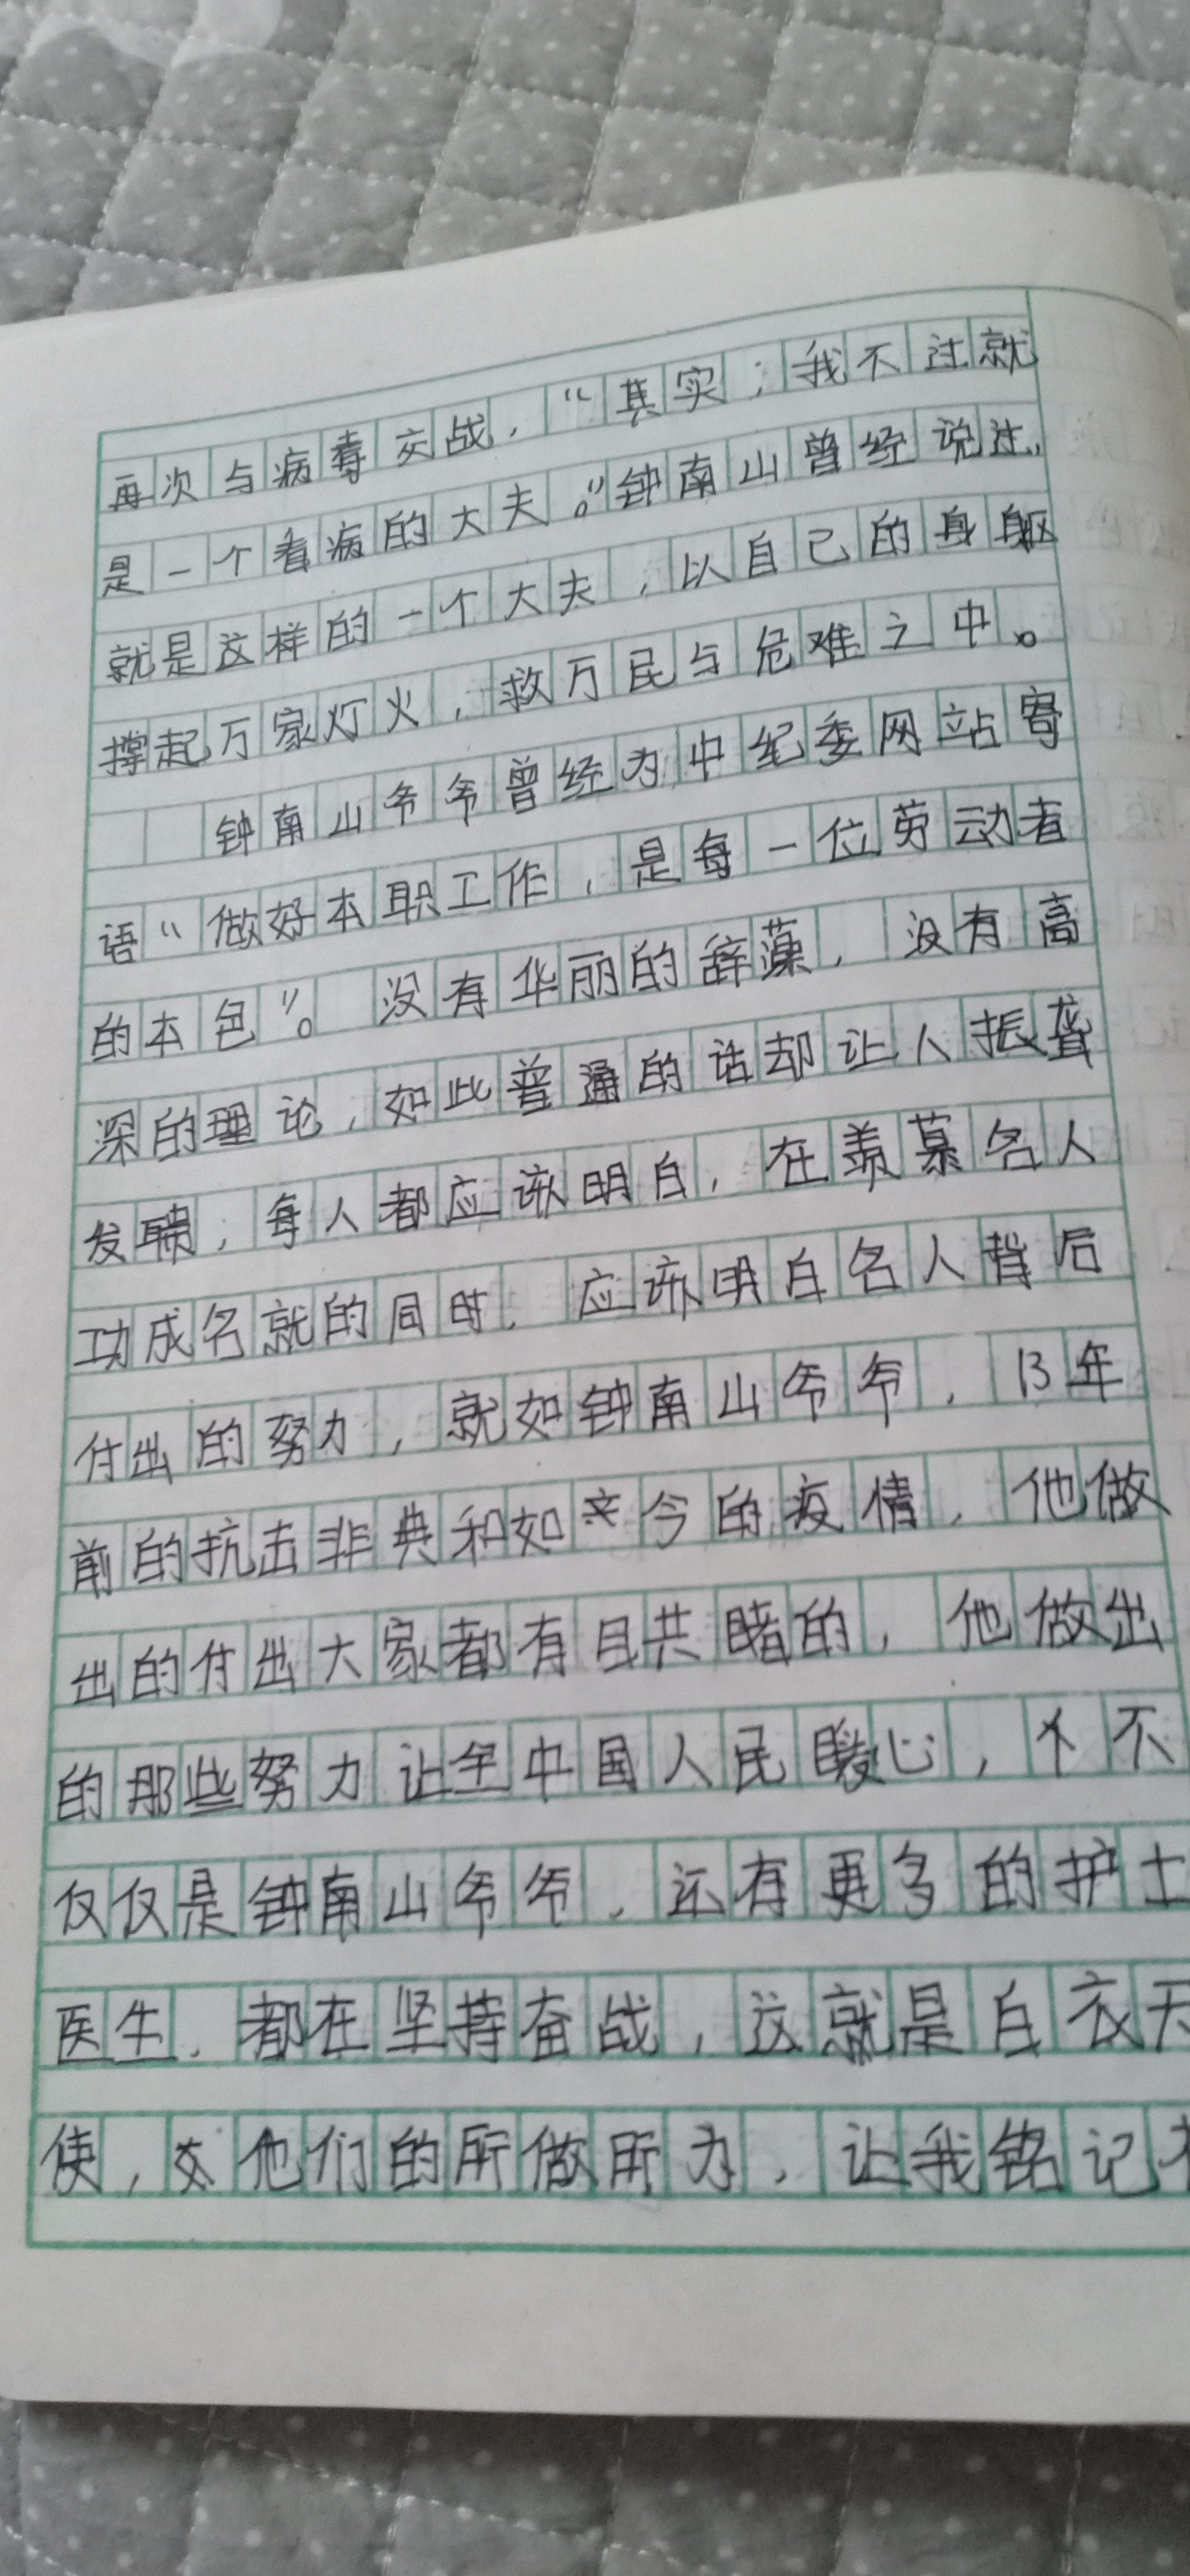 再次与病毒交战，“其实，我不过就
是一个看病的大夫。”钟南山曾经说过，
就是这样的一个大夫，以自己的身躯
撑起万家灯火，救万民与危难之中。
钟南山爷爷曾经为中纪委网站寄
语“做好本职工作，是每一位劳动者
的本色”。没有华丽的辞藻，没有高
深的理论，如此普通的话却让人振聋
发聩，每人都应该明白，在羡慕名人
功成名就的同时，应该明白名人背后
付出的努力，就如钟南山爷爷，13年
前的抗击非典和如今的疫情，他做
出的付出大家都有目共睹的，他做出
的那些努力让全中国人民暖心，不
仅仅是钟南山爷爷，还有更多的护士
医生，都在坚持奋战，这就是白衣天
使，他们的所做所为，让我铭记